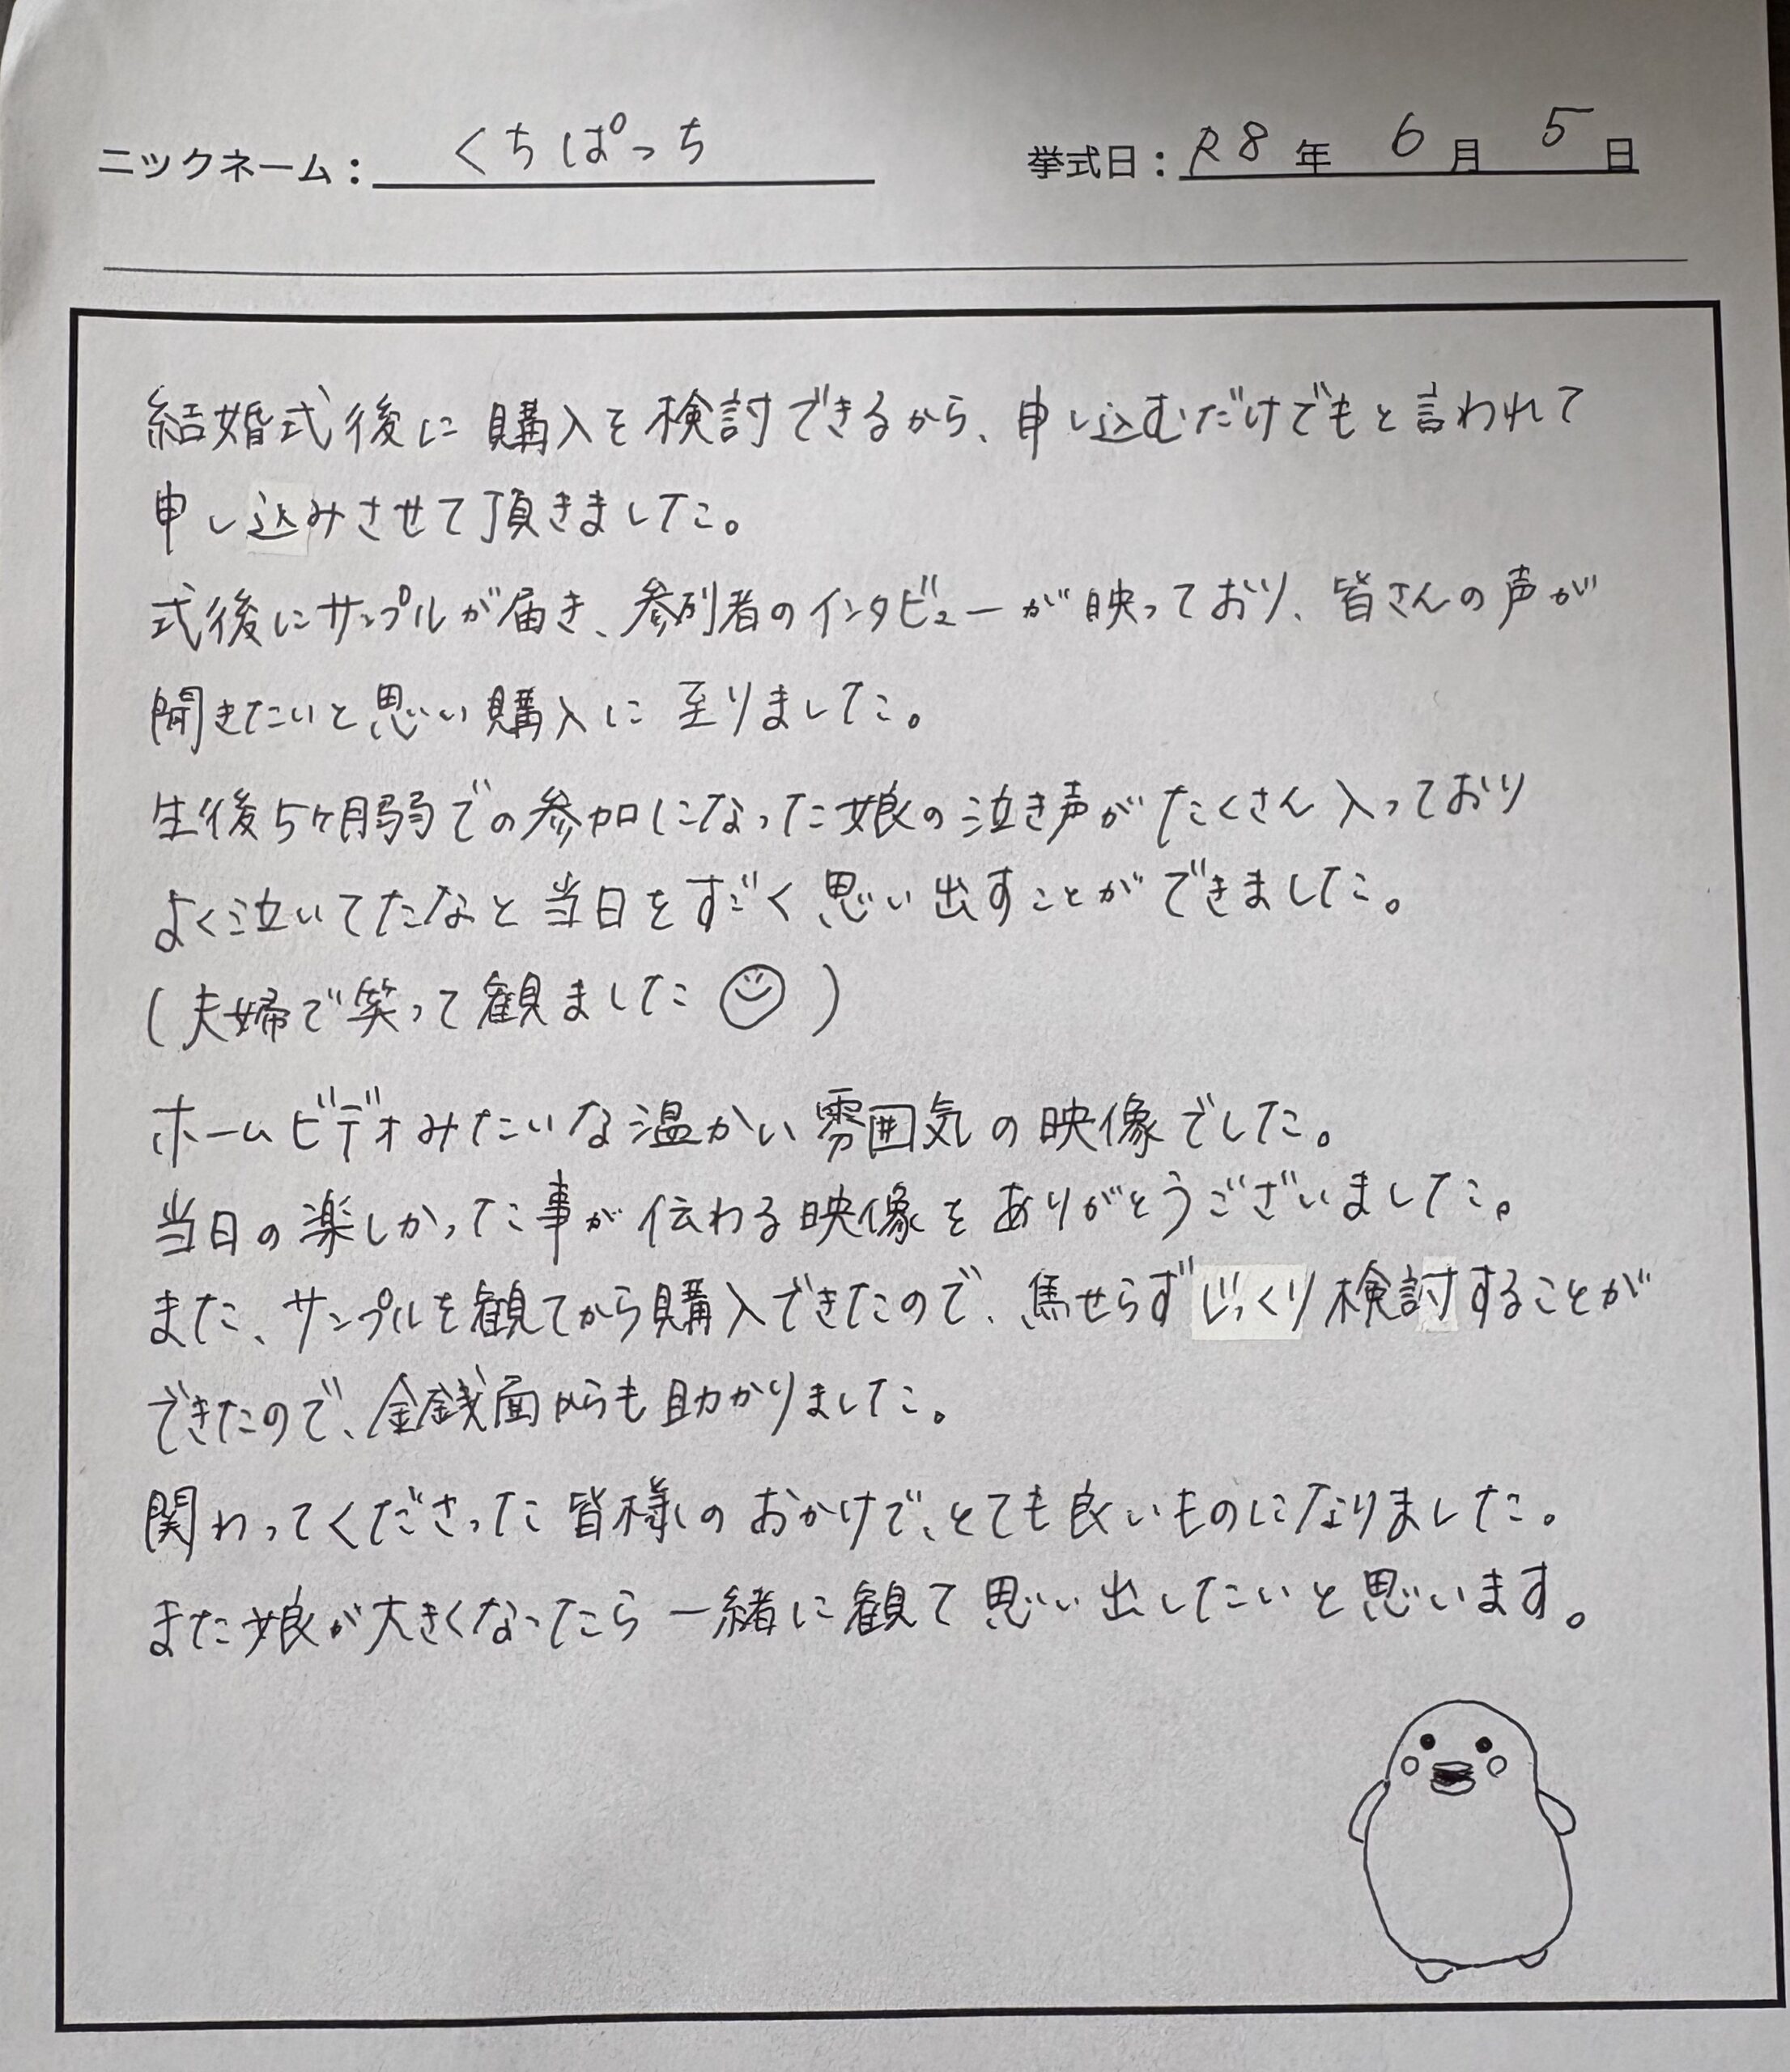 ニックネーム： くちぱっち 挙式日： R8 年 6 月 5 日
結婚式後に購入を検討できるから、申し込むだけでもと言われて
申し込みさせて頂きました。
式後にサンプルが届き、参列者のインタビューが映っており、皆さんの声が
聞きたいと思い購入に至りました。
生後5ヶ月弱での参加になった娘の泣き声がたくさん入っており
よく泣いてたなと当日をすごく思い出すことができました。
(夫婦で笑って観ました☺)
ホームビデオみたいな温かい雰囲気の映像でした。
当日の楽しかった事が伝わる映像をありがとうございました。
また、サンプルを観てから購入できたので、焦せらずじっくり検討することが
できたので、金銭面からも助かりました。
関わってくださった皆様のおかげで、とても良いものになりました。
また娘が大きくなったら一緒に観て思い出したいと思います。